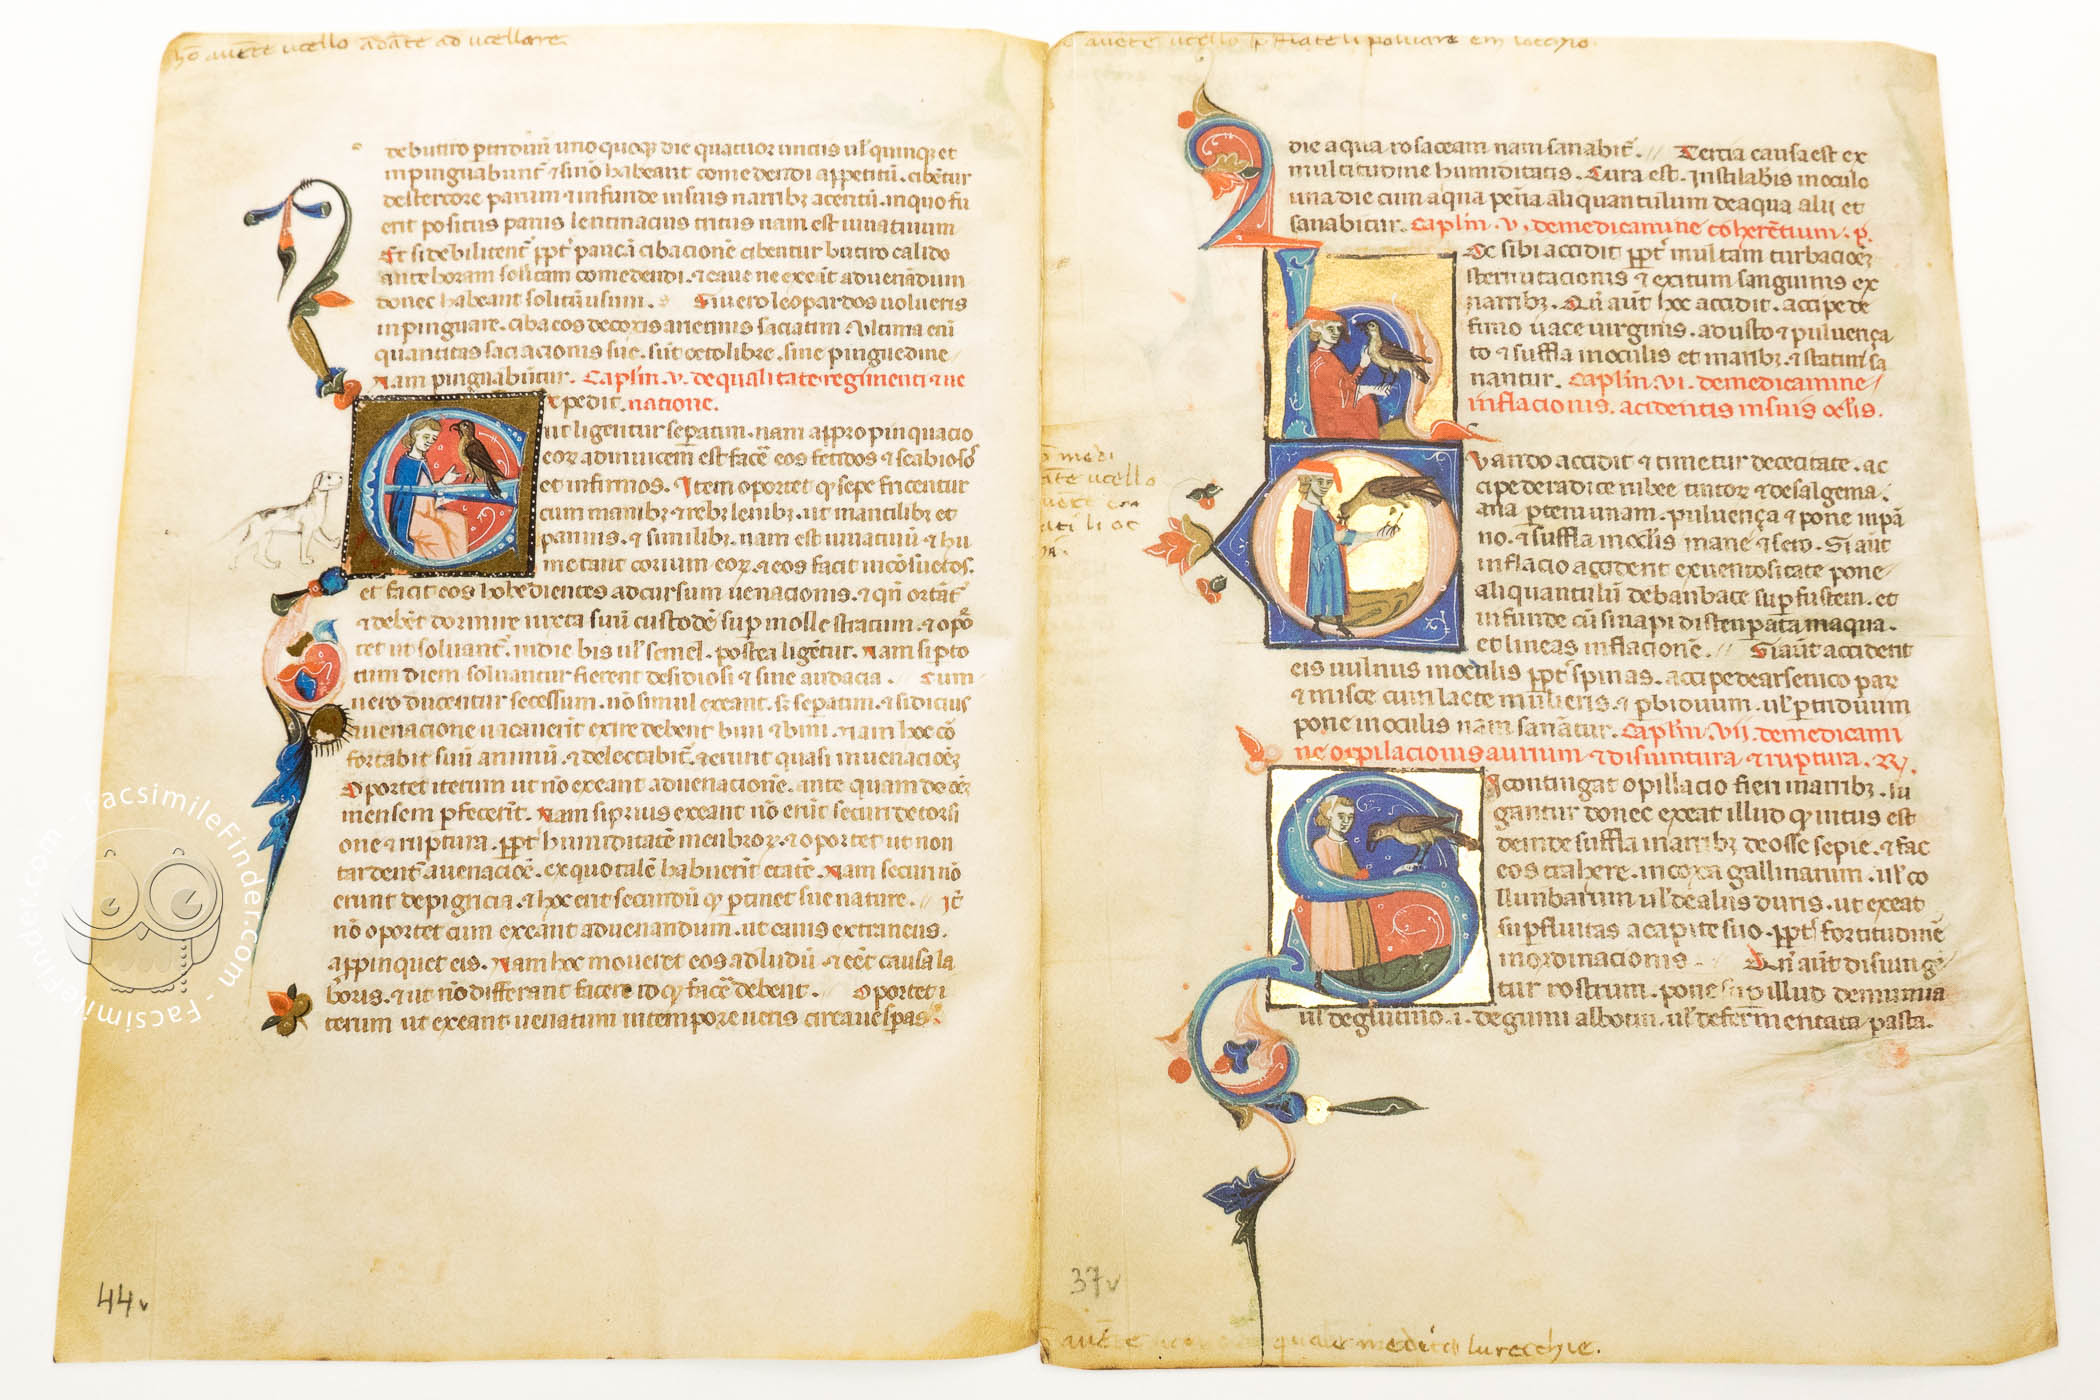 ho avere ucello adate ad ucellare
de butiro perdiuũ uno quoqꝫ die quatuor uncis ul' quinqꝫ et
inpinguabunt᷑ ⁊ si nõ habeant comedendi appetitũ. cibẽtur
de stercore parum ⁊ infunde in suis naribꝫ acetũ. in quo fu
erit positus panis fermentacius tritus nam est iuuatiuum
Et si debilitent᷑ ꝓpt᷑ paucã cibacionẽ cibentur butiro calido
ante horam solitam comedendi. ⁊ caue ne exeãt ad uenãdum
donec habeant solitũ usum. Si uero leopardos uolueris
inpinguare. ciba eos de coxis arietinis saciatim ⁊ ultima eni
quantitas saciacionis sue. sũt octo libre. sine pinguedine
nam pinguabũtur. Capl'm .v. de qualitate regimenti ⁊ ue
xpedit. natione.
ut ligentur seperatim. nam appropinquacio
eoꝝ adinuicem est facẽ eos fetidos ⁊ scabiosos
et infirmos. Item oportet qꝫ sepe fricentur
cum manibꝫ ⁊ rebꝫ lenibꝫ. ut mantilibꝫ et
pannis. ⁊ similibꝫ. nam est iuuatiuũ ⁊ hu
mectant corium eoꝝ. ⁊ eos facit incõsuetos.
et facit eos hobedientes ad cursum uenacionis. ⁊ qñ
⁊ debẽt dormire iuxta suũ custodẽ sup molle stratum. ⁊ opõ
tet ut soluant᷑. in die bis ul' semel. postea ligẽtur. nam si p to
tum diem soluantur fierent desidiosi ⁊ sine audacia. Cum
uero ducentur secessum. nõ simul exeant. sꝫ seperatim. ⁊ si dicius
uenacione uacauerit exire debent bini ⁊ bini. nam hoc cõ
fortabit suũ animũ. ⁊ delectabit᷑. ⁊ erunt quasi in uenacioẽ
Oportet iterum ut nõ exeant ad uenacionẽ. ante quam do
mensem pfecerit. nam si prius exeant nõ erũt securi de torsi
one ⁊ ruptura. ꝓpt᷑ humiditatẽ membroꝝ. ⁊ oportet ut non
tardent᷑ a uenacioẽ. ex quo talẽ habuerit etatẽ. nam securi nõ
erunt de pigricia. ⁊ hoc erit secundũ qꝫ ptinet sue nature. It᷑
nõ oportet cum exeant ad uenandum. ut canis extraneus.
appinquet eis. nam hoc moueret eos ad ludũ ⁊ eẽt causa la
boris. ⁊ ut nõ differant facere id qꝫ facẽ debent. Oportet i
terum ut exeant uenatum in tempore ueris circa uespas.
44v
avere ucello polvare em locchio.
die aqua rosaceam nam sanabit᷑. Tercia causa est ex
multitudine humiditatis. Cura est. Instilabis in oculo
una die cum aqua aliquantulum de aqua alii et
sanabitur. Capl'm .v. de medicamine coherẽtium. p.
Hec sibi accidit ꝓpt᷑ multam turbacioẽ
sternutacionis ⁊ exitum sanguinis ex
naribꝫ. Qñ aũt hoc accidit. accipe de
fimo uace uirginis. adusto ⁊ puluença
to ⁊ suffla in oculis et naribꝫ. ⁊ statim sa
nantur. Capl'm .vi. de medicamine
inflacionis. accidentis in suis ocl'is.
Vando accidit ⁊ timetur de cecitate. ac
cipe de radice rubee tintoꝝ ⁊ de sal gema.
ana ptem unam. puluença ⁊ pone in pã
no. ⁊ suffla in oc̃lis mane ⁊ sero. Si aũt
inflacio accident ex uentositate pone
aliquantulũ de banbace sup fustem. et
infunde cũ sinapi distenpata in aqua.
et lineas inflacionẽ. Si aũt accident
eis uulnus in oculis ꝓpt᷑ spinas. accipe de arsenico par
⁊ misce cum lacte mulieris. ⁊ p biduum. ul' p triduum
pone in oculis nam sanãtur. Capl'm .vii. de medicami
ne opilacionis aurium ⁊ disiuntura ⁊ ruptura.
I contingat opillacio fieri in naribꝫ. su
gantur donec exeat illud qꝫ intus est
deinde suffla in naribꝫ de osse sepie. ⁊ fac
eos trahere. in coxa gallinarum. ul' co
llunbarum ul' de aliis duris. ut exeat
supfluitas a capite suo. ꝓpt᷑ fortitudinẽ
inordinacionis. Qñ aũt disiunge
tur rostrum. pone sup illud de mumia
ul' de glutino .i. de gumi albotin. ul' de fermentata pasta.
medi
ate ucello
37v
quale medici lurecchie.
FacsimileFinder.com - FacsimileFinder.com - FacsimileFinder.com